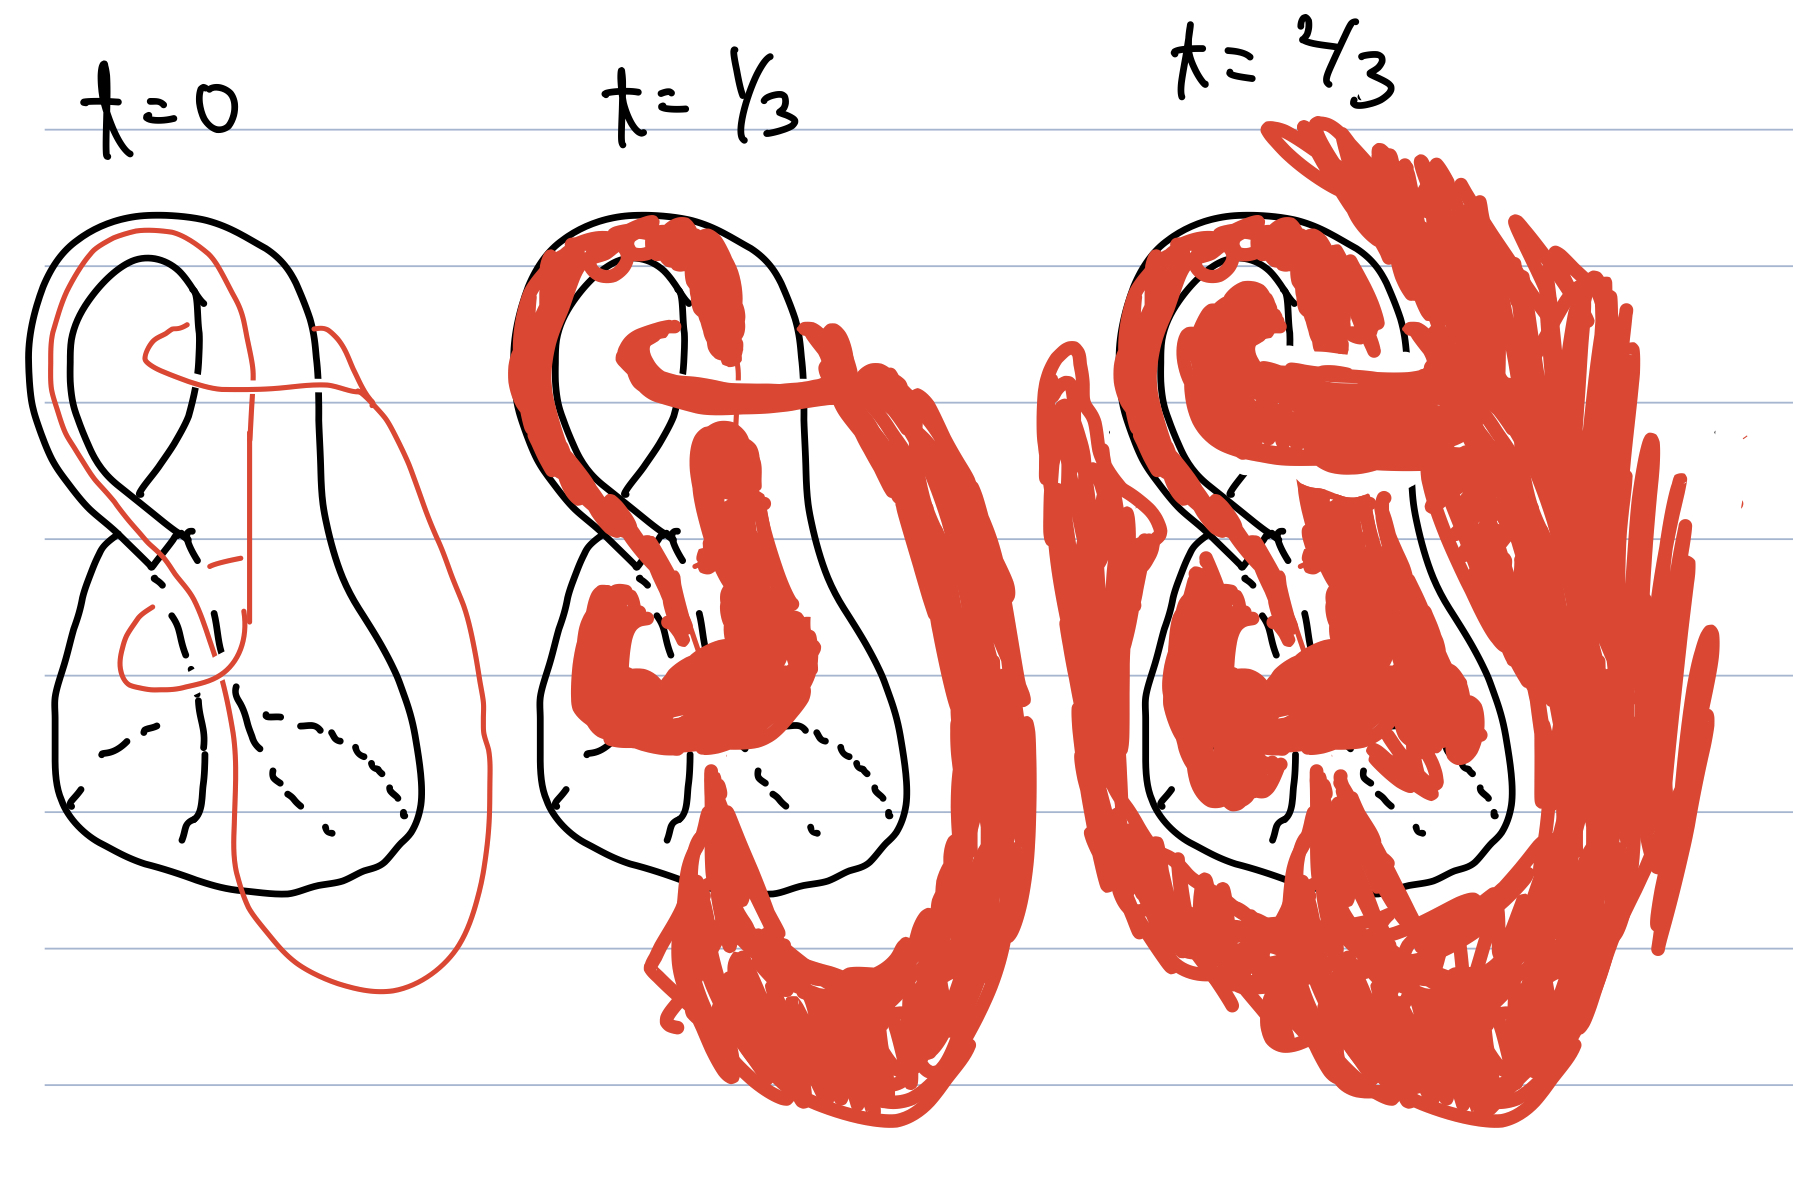 t=0
t=1/3
t=2/3